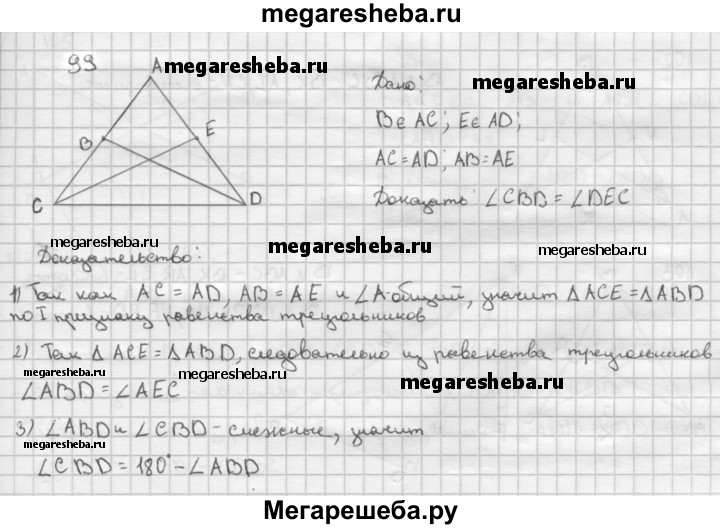 megaresheba.ru
99
A
megaresheba.ru
B
E
C
D
Дано:
megaresheba.ru
B∈ AC; E∈ AD;
AC=AD; AB=AE
megaresheba.ru
Доказать: ∠CBD = ∠DEC
megaresheba.ru
megaresheba.ru
megaresheba.ru
Доказательство:
megaresheba.ru
1) Так как AC = AD, AB = AE и ∠A-общий, значит △ACE=△ABD
по I признаку равенства треугольников
megaresheba.ru
2) Так △ACE=△ABD, следовательно из равенства треугольников
megaresheba.ru
megaresheba.ru
megaresheba.ru
∠ABD=∠AEC
3) ∠ABD и ∠CBD-смежные, значит
megaresheba.ru
megaresheba.ru
∠CBD = 180°-∠ABD
Мегарешеба.ру